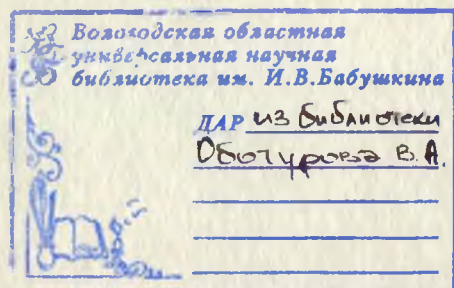 Вологодская областная
универсальная научная
библиотека им. И.В.Бабушкина
ДАР из библиотеки
Обатурова В.А.